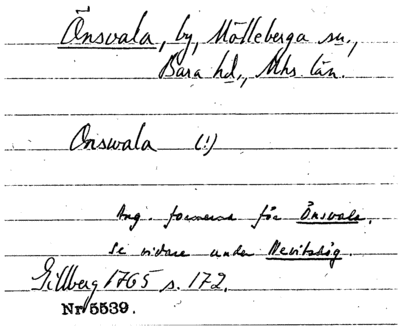 Önsvala, by, Mölleberga sn.,
Bara hd., Mhs. län.
Onswala (!)
Ang. formerna för Önsvala.
Se vidare under
Gillberg 1765 s. 172.
Nr 5539.